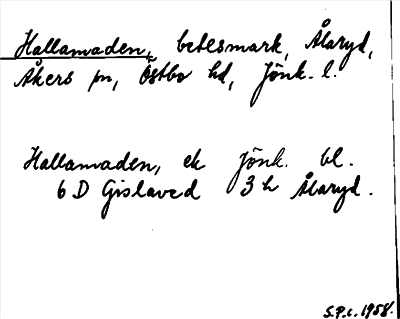 Hallamaden, betesmark, Ålaryd,
Åkers sn, Östbo hd, Jönk. l.
Hallamaden, ek Jönk. bl.
6 D Gislaved 3 h Ålaryd.
S.P.c. 1958.